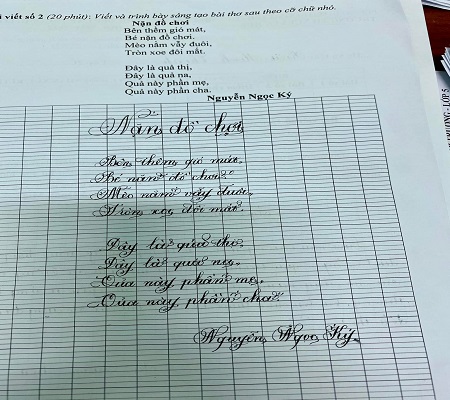 i viết số 2 (20 phút): Viết và trình bày sáng tạo bài thơ sau theo cỡ chữ nhỏ.
Nặn đồ chơi
Bên thềm gió mát,
Bé nặn đồ chơi.
Mèo nằm vẫy đuôi,
Tròn xoe đôi mắt.
Đây là quả thị,
Đây là quả na,
Quả này phần mẹ,
Quả này phần cha.
Nguyễn Ngọc Ký
Nặn đồ chơi
Bên thềm gió mát,
Bé nặn đồ chơi.
Mèo nằm vẫy đuôi,
Tròn xoe đôi mắt.
Đây là quả thị,
Đây là quả na,
Quả này phần mẹ,
Quả này phần cha.
Nguyễn Ngọc Ký
TRƯỜNG - LỚP 5